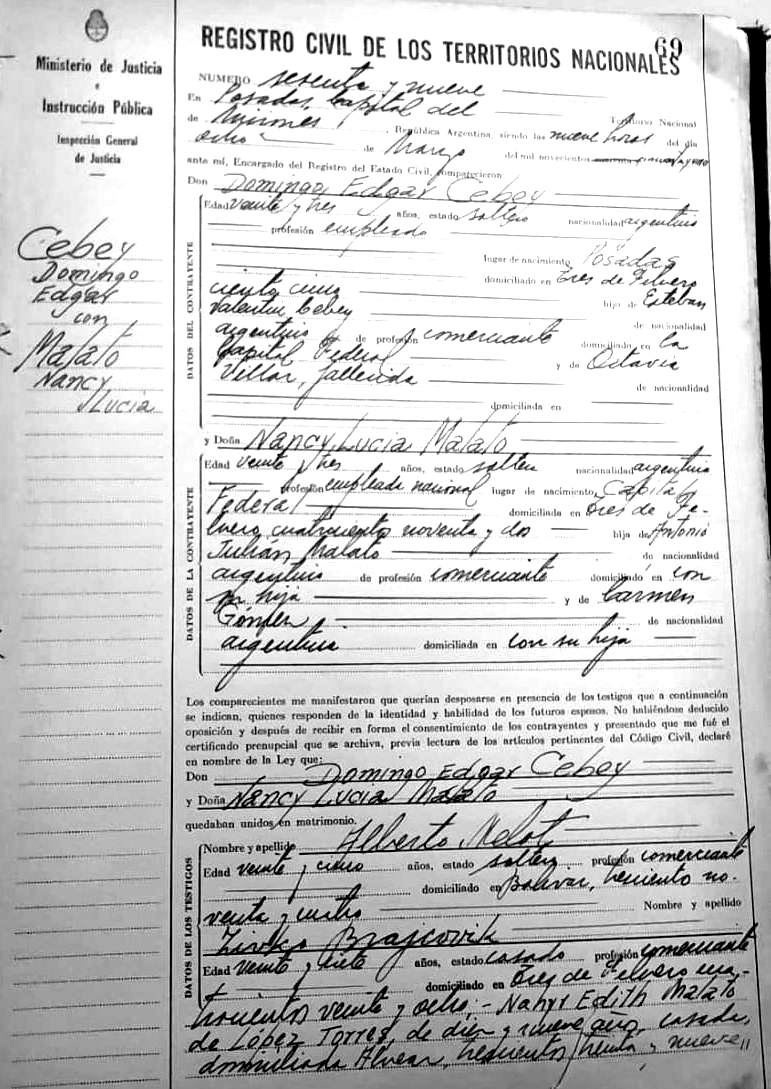 Ministerio de Justicia
e
Instrucción Pública
Inspección General
de Justicia
Cebey
Domingo
Edgar
con
Malato
Nancy
Lucia
69
REGISTRO CIVIL DE LOS TERRITORIOS NACIONALES
NUMERO sesenta y nueve
En Posadas, Capital del Territorio Nacional
de Misiones, República Argentina, siendo las nueve horas del día
ocho de Marzo del mil novecientos cincuenta y uno
ante mí, Encargado del Registro del Estado Civil, comparecieron
Don Domingo Edgar Cebey
DATOS DEL CONTRAYENTE
Edad veinte y tres años, estado soltero nacionalidad argentino
profesión empleado
lugar de nacimiento Posadas
domiciliado en tres de Febrero
ciento cinco hijo de Esteban
Valentin Cebey de nacionalidad
argentino de profesión comerciante domiciliado en la
Capital Federal y de Octavia
Villar, fallecida de nacionalidad
domiciliada en
y Doña Nancy Lucia Malato
DATOS DE LA CONTRAYENTE
Edad veinte y tres años, estado soltera nacionalidad argentina
profesión empleada nacional lugar de nacimiento Capital
Federal domiciliada en tres de Fe-
brero cuatrocientos noventa y dos hija de Antonio
Julián Malato de nacionalidad
argentino de profesión comerciante domiciliado en con
su hija y de Carmen
de nacionalidad
argentina domiciliada en con su hija
Los comparecientes me manifestaron que querían desposarse en presencia de los testigos que a continuación
se indican, quienes responden de la identidad y habilidad de los futuros esposos. No habiéndose deducido
oposición y después de recibir en forma el consentimiento de los contrayentes y presentado que me fué el
certificado prenupcial que se archiva, previa lectura de los artículos pertinentes del Código Civil, declaré
en nombre de la Ley que:
Don Domingo Edgar Cebey
y Doña Nancy Lucia Malato
quedaban unidos en matrimonio.
DATOS DE LOS TESTIGOS
Nombre y apellido Alberto
Edad veinte y cinco años, estado soltero profesión comerciante
domiciliado en Bolivar, trescientos no-
venta y cuatro Nombre y apellido
Zivko Brajcovik
Edad veinte y siete años, estado casado profesión comerciante
domiciliado en tres de Febrero
trocientos veinte y ocho.- Nahyr Edith Malato
de López Torres, de diez y nueve años, casada,
domiciliada Alvear, trescientos treinta y nueve,,